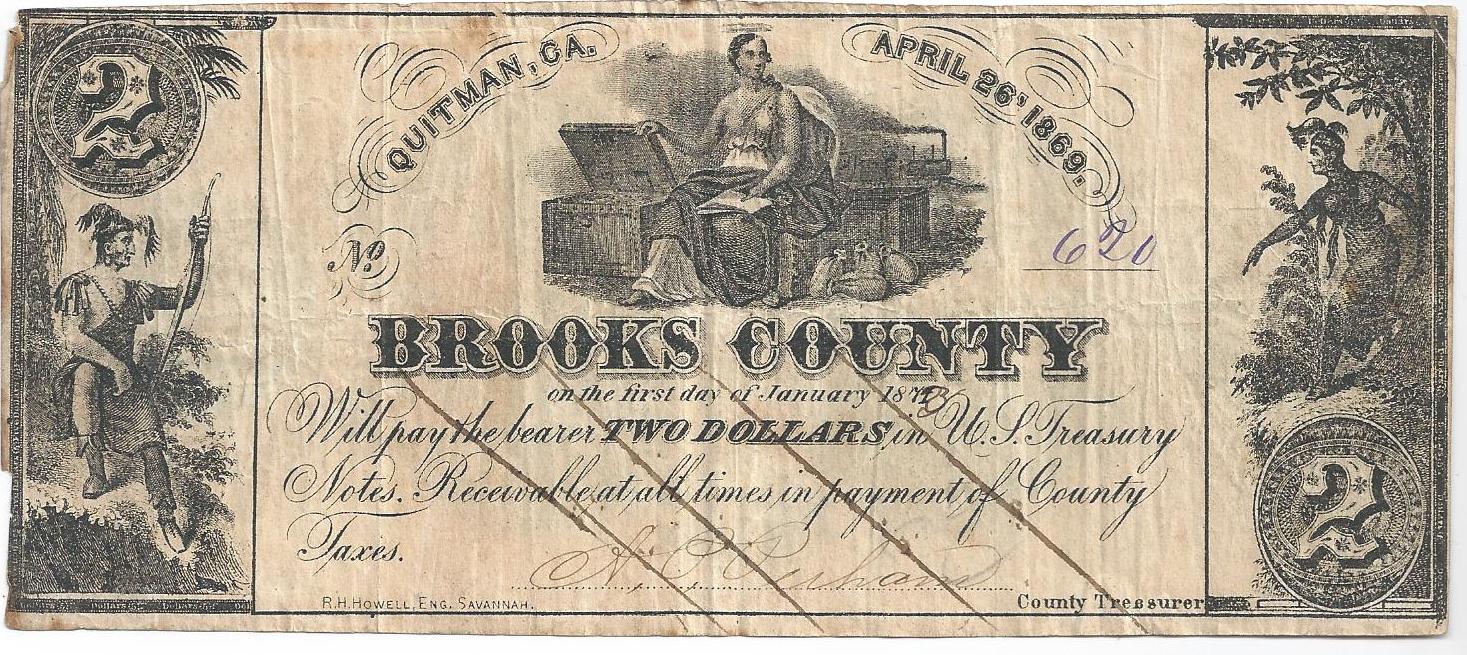 2
QUITMAN, GA.
APRIL 26' 1869.
No
620
BROOKS COUNTY
on the first day of January 1873
Will pay the bearer TWO DOLLARS in U.S. Treasury
Notes. Receivable at all times in payment of County
Taxes.
R.H. HOWELL, ENG. SAVANNAH.
County Treasurer
2